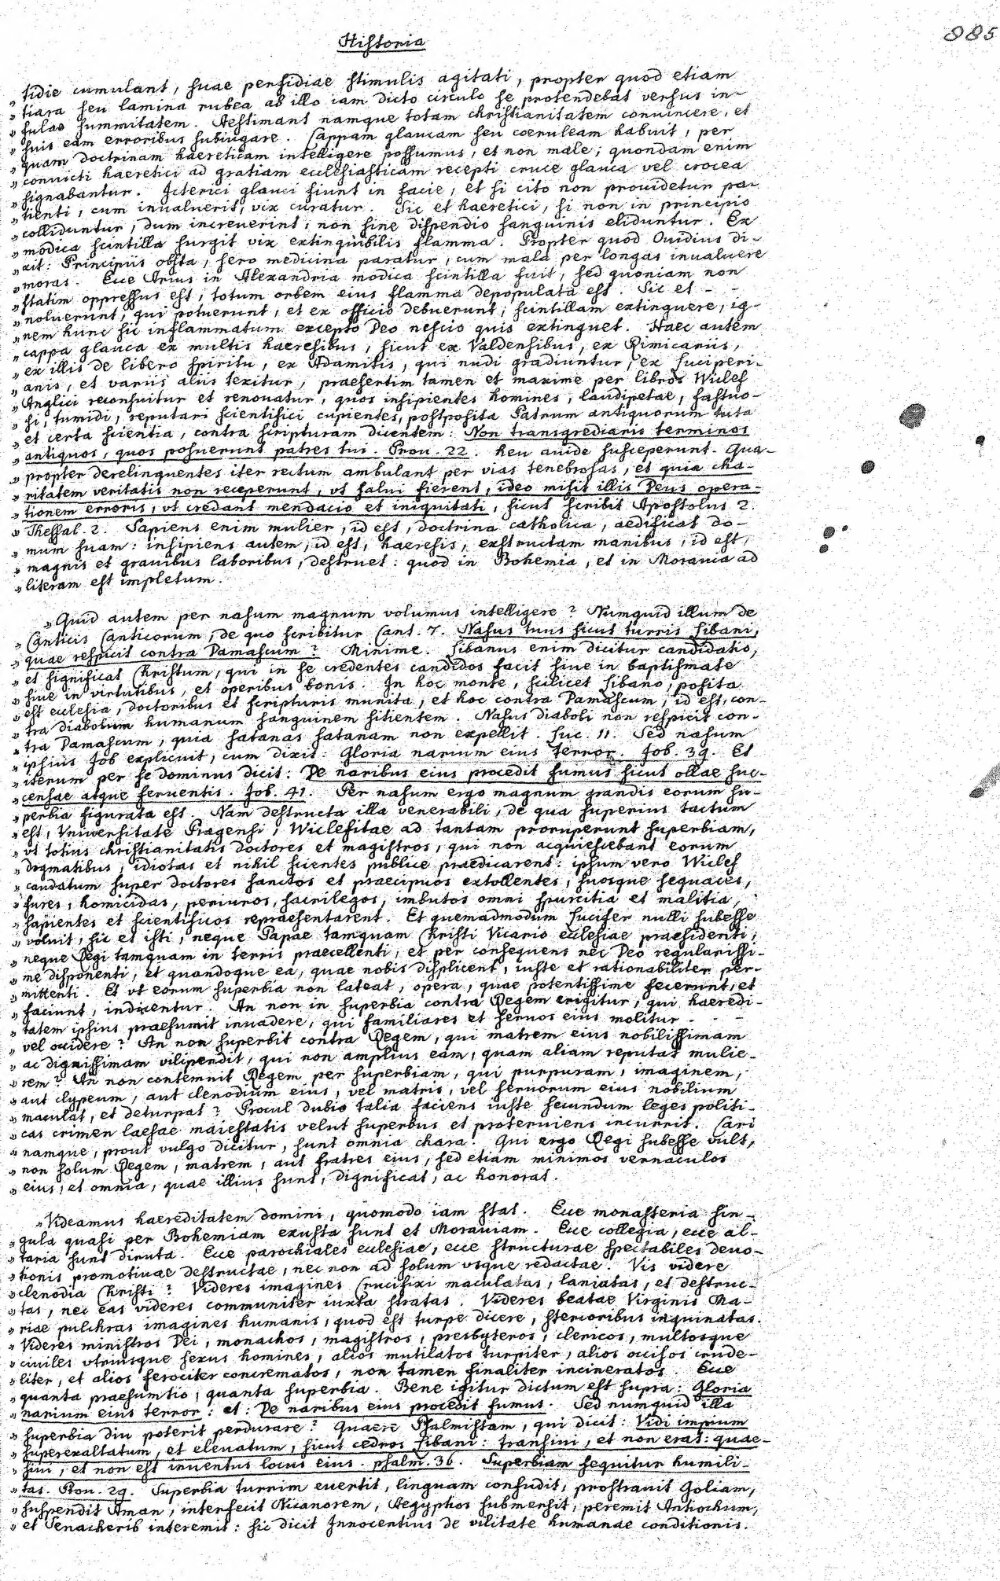 Historia
885
„tidie cumulant, suae persidiae stimulis agitati, propter quod etiam
„tiara seu lamina rubea ab illo iam dicto circulo se protendebat versus in-
„fulae summitatem. Aestimant namque totam christianitatem convincere, et
„suis eam erroribus subiugare. Cappam glaucam seu coeruleam habuit, per
„quam doctrinam haereticam intelligere possumus, et non male; quondam enim
„convicti haeretici ad gratiam ecclesiasticam recepti cruce glauca vel crocea
„signabantur. Icterici glauci fiunt in facie, et si cito non prouidetur pa-
„tienti, cum inualuerit, vix curatur. Sic et haeretici, si non in principio
„colliduntur, dum increuerint, non sine dispendio sanguinis eliduntur. Ex
„modica scintilla surgit vix extinguibilis flamma. Propter quod Ouidius di-
„xit: Principiis obsta, sero medicina paratur, cum mala per longas inualuere
„moras. Ecce Arius in Alexandria modica scintilla fuit, sed quoniam non
„statim oppressus est, totum orbem eius flamma depopulata est. Sic et - -
„noluerunt, qui potuerunt, et ex officio debuerunt, scintillam extinguere, ig-
„nem hunc sic inflammatum excepto Deo nescio quis extinguet. Haec autem
„cappa glauca ex multis haeresibus, sicut ex Valdensibus, ex Rimicariis,
„ex illis de libero spiritu, ex Adamitis, qui nudi gradiuntur, ex Luciperi-
„anis, et variis aliis texitur, praesertim tamen et maxime per libros Wiclef
„Anglici reconsuitur et renouatur, quos insipientes homines, laudipetae, fastuo-
„si, tumidi, reputari scientifici cupientes, postposita Patrum antiquorum tuta
„et certa scientia, contra scripturam dicentem: Non transgrediaris terminos
„antiquos, quos posuerunt patres tui. Prou. 22. heu auide susceperunt. Qua-
„propter derelinquentes iter rectum ambulant per vias tenebrosas, et quia cha-
„ritatem veritatis non receperunt, vt salui fierent, ideo misit illis Deus opera-
„tionem erroris, vt credant mendacio et iniquitati, sicut scribit Apostolus 2.
„Thessal. 2. Sapiens enim mulier, id est, doctrina catholica, aedificat do-
„mum suam: insipiens autem, id est, haeresis, exstructam manibus, id est,
„magnis et grauibus laboribus, destruet: quod in Bohemia, et in Morauia ad
„literam est impletum.
„Quid autem per nasum magnum volumus intelligere? Numquid illum de
„Canticis Canticorum, de quo scribitur Cant. 7. Nasus tuus sicut turris Libani,
„quae respicit contra Damascum? Minime. Libanus enim dicitur candidatio,
„et significat Christum, qui in se credentes candidos facit siue in baptismate
„siue in virtutibus, et operibus bonis. In hoc monte, scilicet Libano, posita
„est ecclesia, doctoribus et scripturis munita, et hoc contra Damascum, id est, con-
„tra diabolum humanum sanguinem sitientem. Nasus diaboli non respicit con-
„tra Damascum, quia satanas satanam non expellit. Luc. 11. Sed nasum
„ipsius Job explicuit, cum dixit: Gloria narium eius terror. Job. 39. Et
„iterum per se dominus dicit: De naribus eius procedit fumus sicut ollae suc-
„censae atque feruentis. Job. 41. Per nasum ergo magnum grandis eorum su-
„perbia figurata est. Nam destructa illa venerabili, de qua superius tactum
„est, Vniuersitate Pragensi, Wiclefitae ad tantam proruperunt superbiam,
„vt totius christianitatis doctores et magistros, qui non acquiescebant eorum
„dogmatibus, idiotas et nihil scientes publice praedicarent: ipsum vero Wiclef
„caudatum super doctores sanctos et praecipuos extollentes, suosque sequaces,
„fures, homicidas, periuros, sacrilegos, imbutos omni spurcitia et malitia,
„sapientes et scientificos repraesentarent. Et quemadmodum Lucifer nulli subesse
„voluit, sic et isti, neque Papae tamquam Christi Vicario ecclesiae praesidenti,
„neque Regi tamquam in terris praecellenti, et per consequens nec Deo regularissi-
„me disponenti, et quandoque ea, quae nobis displicent, iuste et rationabiliter per-
„mittenti. Et vt eorum superbia non lateat, opera, quae potentissime fecerunt, et
„faciunt, indicentur. An non in superbia contra Regem erigitur, qui haeredi-
„tatem ipsius praesumit inuadere, qui familiares et seruos eius molitur - - -
„vel occidere? An non superbit contra Regem, qui matrem eius nobilissimam
„ac dignissimam vilipendit, qui non amplius eam, quam aliam reputat mulie-
„rem? An non contemnit Regem per superbiam, qui purpuram, imaginem,
„aut clypeum, aut clenodium eius, vel matris, vel seruorum eius nobilium
„maculat, et deturpat? Procul dubio talia faciens iuste secundum leges politi-
„cas crimen laesae maiestatis velut superbus et proteruiens incurrit. Cari
„namque, prout vulgo dicitur, sunt omnia chara. Qui ergo Regi subesse vult,
„non solum Regem, matrem, aut fratres eius, sed etiam minimos vernaculos
„eius, et omnia, quae illius sunt, dignificat, ac honorat.
„Videamus haereditatem domini, quomodo iam stat. Ecce monasteria sin-
„gula quasi per Bohemiam exusta sunt et Morauiam. Ecce collegia, ecce al-
„taria sunt diruta. Ecce parochiales ecclesiae, ecce structurae spectabiles deuo-
„tionis promotiuae destructae, nec non ad solum vsque redactae. Vis videre
„clenodia Christi? Videres imagines Crucifixi maculatas, laniatas, et destruc-
„tas, nec eas videres communiter iuxta stratas. Videres beatae Virginis Ma-
„riae pulchras imagines humanis, quod est turpe dicere, stercoribus inquinatas.
„Videres ministros Dei, monachos, magistros, presbyteros, clericos, multosque
„ciuiles vtriusque sexus homines, alios mutilatos turpiter, alios occisos crude-
„liter, et alios ferociter concrematos, non tamen finaliter incineratos. Ecce
„quanta praesumtio, quanta superbia. Bene igitur dictum est supra: Gloria
„narium eius terror: et: De naribus eius procedit fumus. Sed numquid illa
„superbia diu poterit perdurare? Quaere Psalmistam, qui dicit: Vidi impium
„superexaltatum, et eleuatum, sicut cedros Libani: transiui, et non erat: quae-
„siui, et non est inuentus locus eius. psalm. 36. Superbiam sequitur humili-
„tas. Prou. 29. Superbia turrim euertit, linguam confudit, prostrauit Goliam,
„suspendit Aman, interfecit Nicanorem, Aegyptos submersit, peremit Antiochum,
„et Senacherib interemit: sic dicit Innocentius de vilitate humanae conditionis.